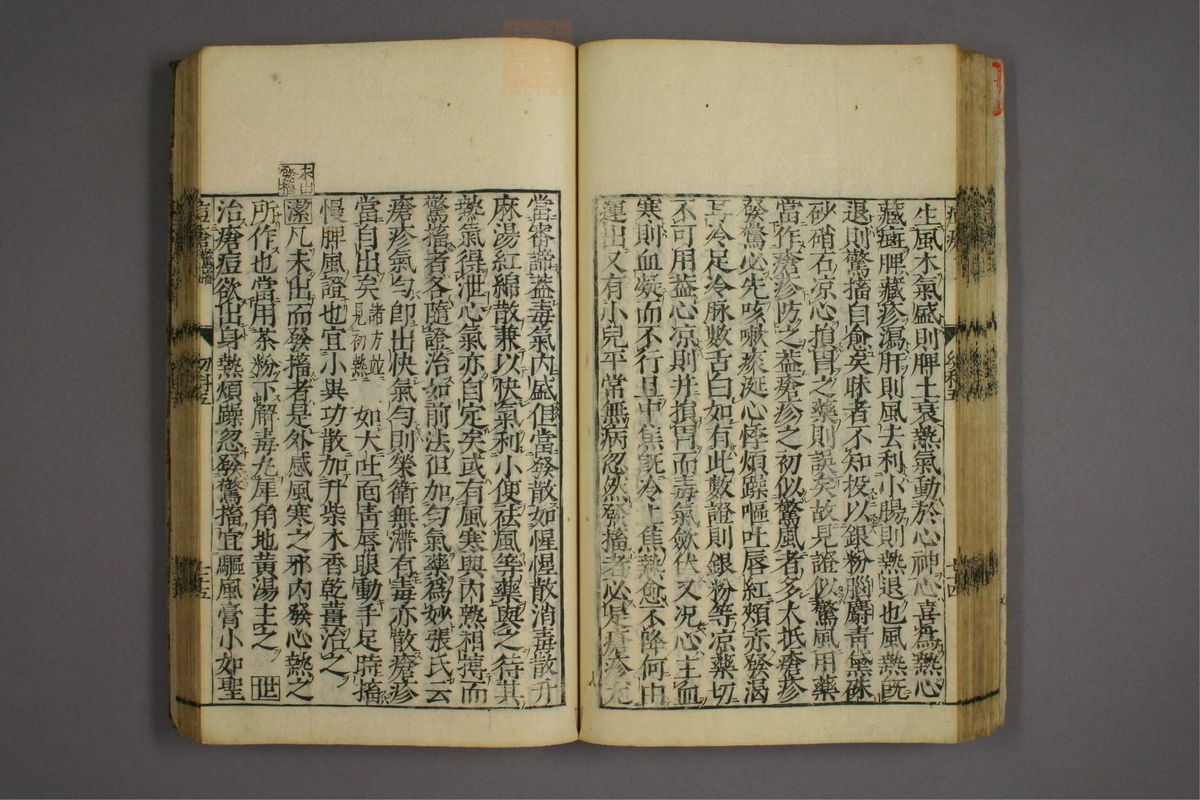 生風木氣盛則脾土衰熱氣動於心神心喜為熱心
藏痘脾藏疹瀉肝則風去利小腸則熱退也風熱既
退則驚搐自愈矣昧者不知投以銀粉腦麝青黛硃
砂硝石凉心損胃之藥則誤矣故見證似驚風用藥
當作瘡疹防之蓋瘡疹之初似驚風者多大抵瘡疹
發驚必先咳嗽痰涎心悸煩躁嘔吐唇紅頰赤發渴
耳冷足冷脉數舌白如有此數證則銀粉等凉藥切
不可用蓋心凉則并損胃而毒氣斂伏又况心主血
寒則血凝而不行且中焦既冷上焦熱愈不降何由
運出又有小兒平常無病忽然發搐者必是瘡疹尤
當審諦蓋毒氣内盛但當發散如惺惺散消毒散升
麻湯紅綿散兼以快氣利小便祛風等藥與之待其
熱氣得泄心氣亦自定矣或有風寒與内熱相搏而
驚搐者各隨證治如前法但加匀氣藥為妙張氏云
瘡疹氣匀即出快氣匀則榮衛無滯有毒亦散瘡疹
當自出矣諸方並見初熱如大吐面青唇眼動手足時搐
慢脾風證也宜小異功散加升柴木香乾薑治之
未出發搐
潔凡未出而發搐者是外感風寒之邪内發心熱之
所作也當用茶粉下解毒丸犀角地黄湯主之 世
治瘡痘欲出身熱煩躁忽發驚搐宜驅風膏小如聖